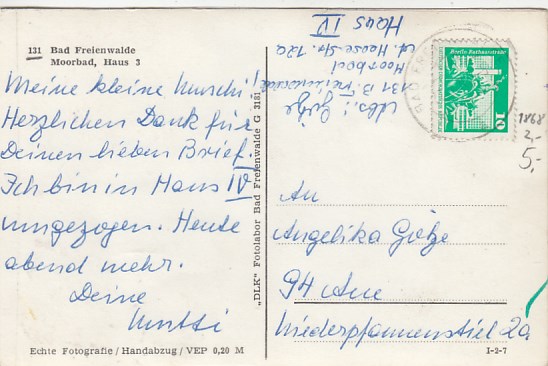 131 Bad Freienwalde
Moorbad, Haus 3
Meine kleine Muschi!
Herzlichen Dank für
Deinen lieben Brief.
Ich bin in Haus IV
umgezogen. Heute
abend mehr.
Deine
Mutti
Echte Fotografie/Handabzug/VEP 0,20 M
„DLK" Fotolabor Bad Freienwalde G 3181
Abs.: Götze
131 B. Freienwalde
Moorbad
Str. 12a
Haus IV
Berlin-Rathausstraße
10
BAD FRE
1868
2,-
5,-
An
Angelika Götze
94 Aue
Niederpfannenstiel 2a
I-2-7